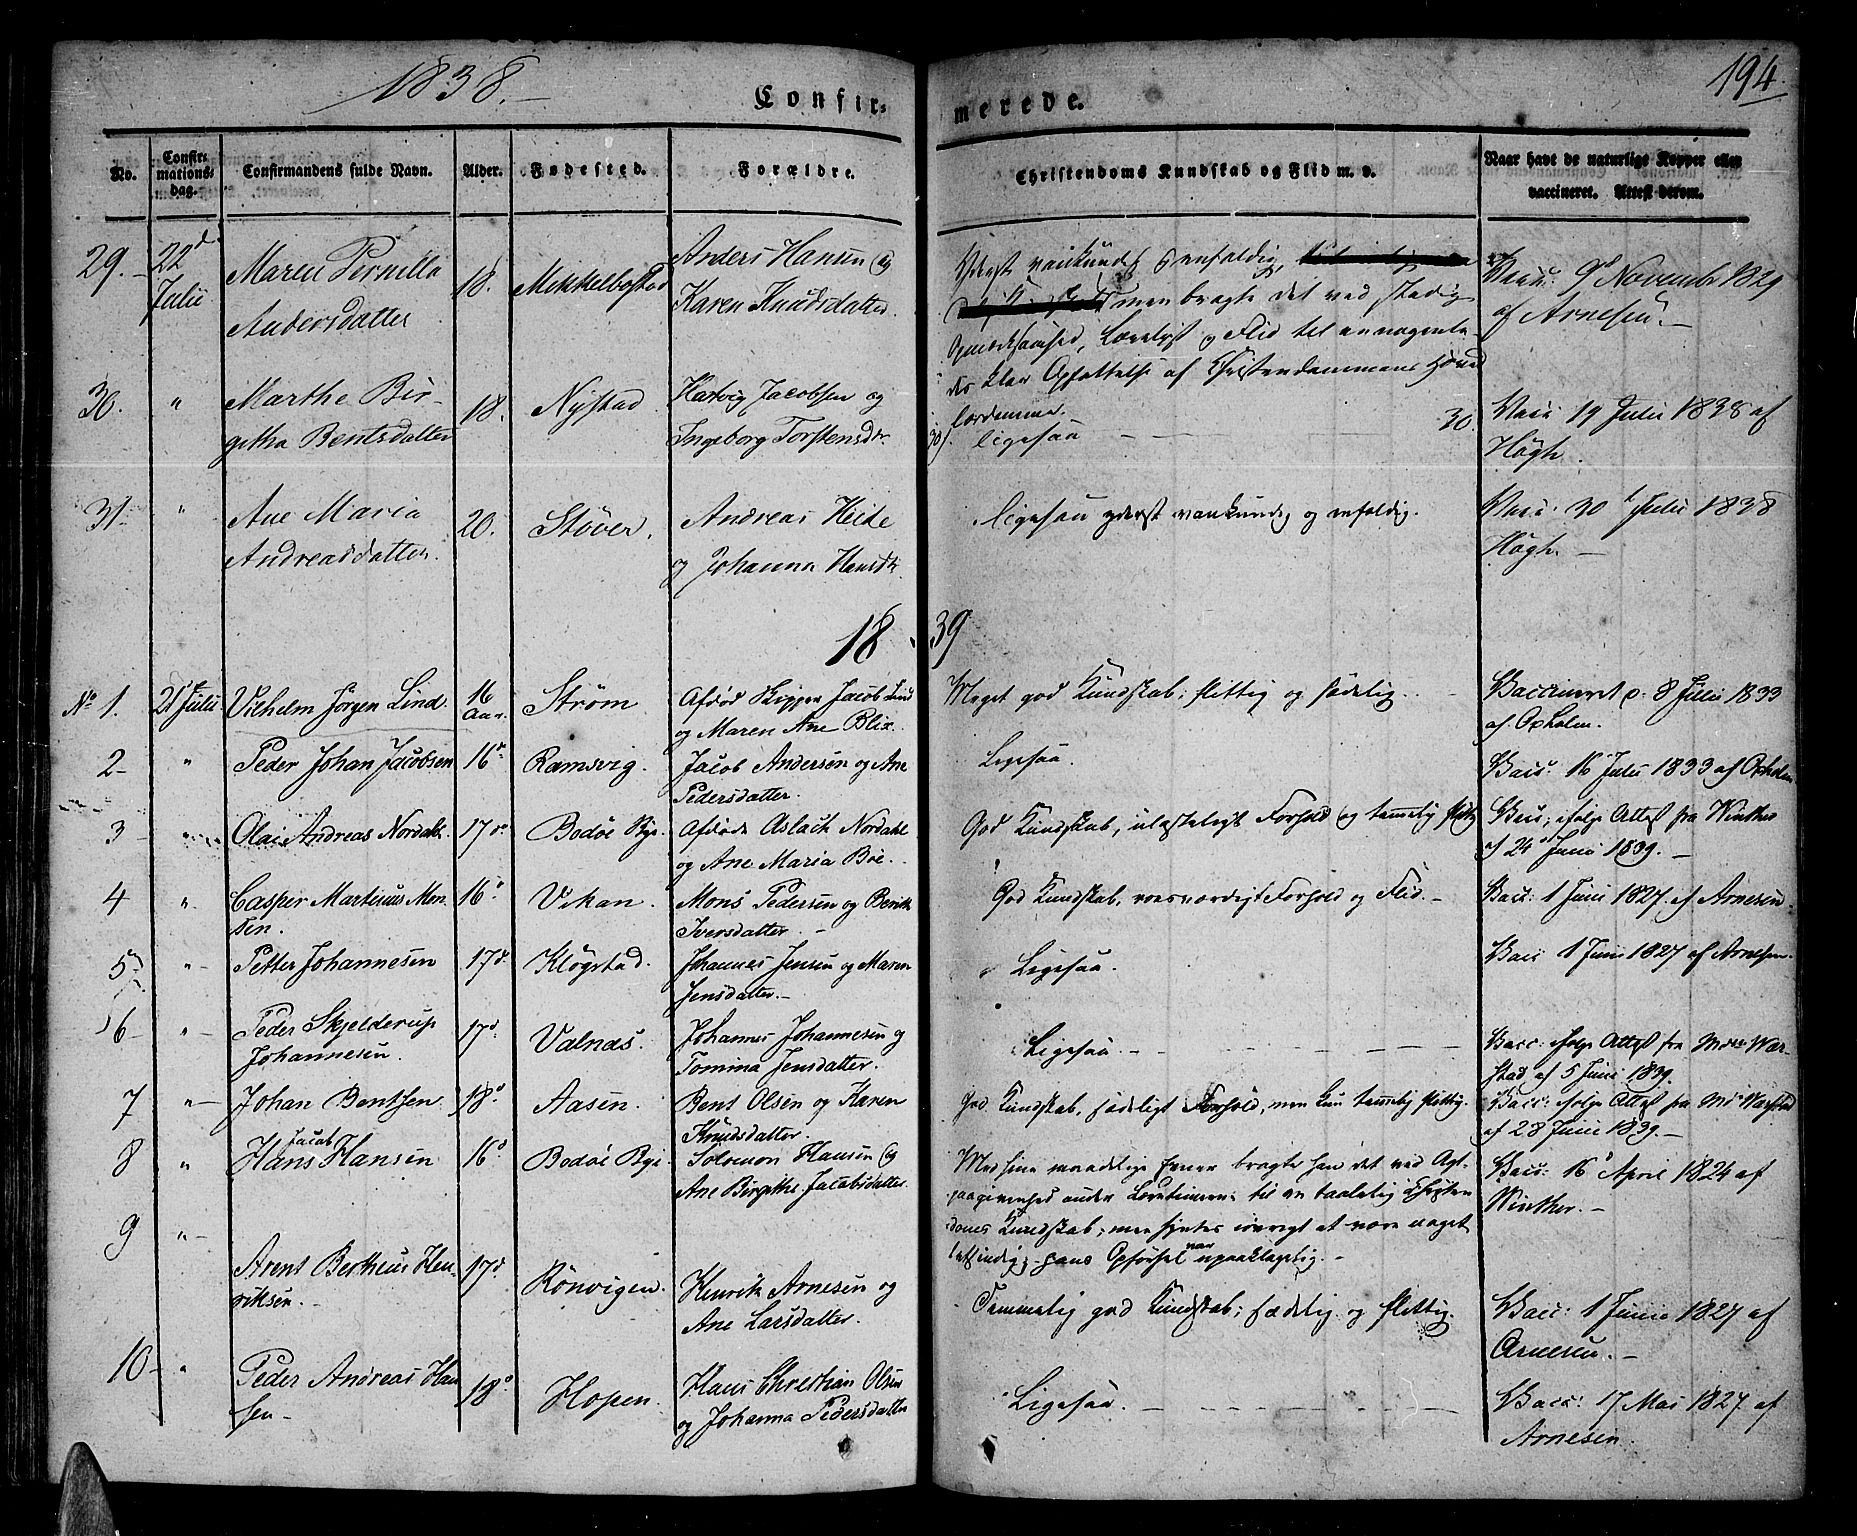 1838.
194
Confir=
merede.
No.
Confir=
mations=
dag.
Confirmandens fulde Navn.
Alder.
Fødested.
Forældre.
Christendoms Kundskab og Flid m. v.
Naar havt de naturlige Kopper eller
vaccineret. Attest derom.
29.
22d
Julii
Maren Pernilla
Andersdatter
18.
Mikkelbostad
Anders Hansen og
Karen Knudsdatter.
Yderst vankundig, enfoldig,
men bragte det ved stadig
Opmærksomhed, Lærelyst og Flid til en nogenle-
des klar Opfattelse af Christendommens Hoved
lærdomme.
Vacc: 9d Novembr 1829
af Arnesen.
30.
"
Marthe Bir-
githa Bentsdatter
18.
Nystad
Hartvig Jacobsen og
Ingeborg Torstensdr.
30.
ligesaa
30.
Vacc 19 Julii 1838 af
Høgh.
31.
"
Ane Maria
Andreasdatter.
20.
Støver.
Andreas Heide
og Johanna Hansdr.
ligesaa yderst vankundig og enfoldig.
Vacc: 30t Julii 1838
Høgh.
18
39
No 1.
21 Julii
Vilhelm Jørgen Lind
16
Aar.
Strøm
Afdød Skipper Jacob Lind
og Maren Ane Blix.
Meget god Kundskab; flittig og sædelig.
Vaccineret d. 8 Julii 1833
af Oxholm.
2
"
Peder Johan Jacobsen
16d
Ramsvig.
Jacob Andersen og Ane
Pedersdatter.
Ligesaa.
Vacc: 16 Julii 1833 af Oxholm
3
"
Olai Andreas Nordahl.
17do
Bodøe Bye
Afdøde Aslach Nordahl
og Ane Maria Boe.
God Kundskab, ulasteligt Forhold og temmelig flittig
Vacc; ifølge Attest fra Winther
af 24 Junii 1839.
4
"
Casper Martinus Mon-
sen.
16d
Vikan.
Mons Pedersen og Berith
Iversdatter.
God Kundskab, roesværdigt Forhold og Flid.
Vacc: 1 Junii 1827 af Arnesen.
5
"
Petter Johannesen
17d.
Kløgstad.
Johannes Jensen og Maren
Jensdatter.
Ligesaa.
Vacc 1 Junii 1827 af Arnesen.
6
"
Peder Skjelderup
Johannesen.
17d.
Valnæs.
Johannes Johannesen og
Tomina Jensdatter.
Ligesaa.
Vacc: ifølge Attest fra War-
stad af 5 Junii 1839.
7
"
Johan Bentsen
18d
Aasen.
Bent Olsen og Karen
Knudsdatter.
God Kundskab, sædeligt Forhold, men kun temmelig flittig.
Vacc: ifølge Attest fra Warstad
af 28 Junii 1839.
8
"
Jacob
Hans Hansen
16d
Bodøe Bye
Solomon Hansen og
Ane Birgithe Jacobsdatter.
Med sine maadelige Evner bragte han det ved Agt-
paagivenhed under Læretimerne til en taalelig Christen
doms Kundskab; men syntes iøvrigt at være noget
letsindig; hans Opførsel var upaaklagelig.
Vacc: 16d April 1824 af
Winther.
9
"
Arent Bertheus Hen-
riksen.
17d.
Rønvigen.
Henrik Arnesen og
Ane Larsdatter.
Temmelig god Kundskab; sædelig og flittig.
Vacc: 1 Junii 1827 af
Arnesen.
10
"
Peder Andreas Han
sen
18d
Hopen.
Hans Christian Olsen
og Johanna Pedersdatter
Ligesaa.
Vacc: 17 Mai 1827 af
Arnesen.